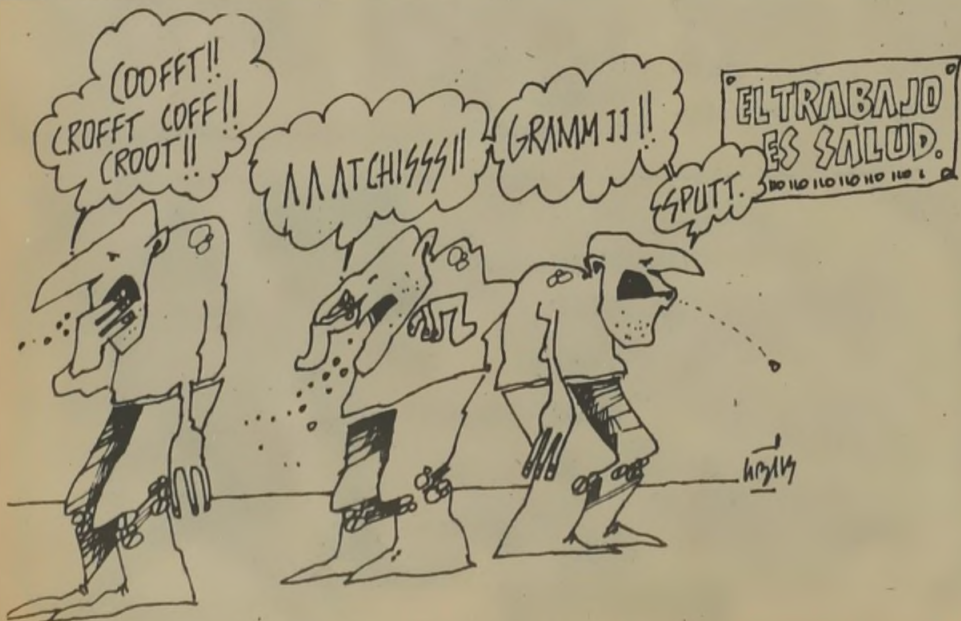 COOFFT!!
CROFFT COFF!!
CROOT!!
AAATCHISSS!!
GRAMMJJ!!
SPUTT.
EL TRABAJO
ES SALUD.